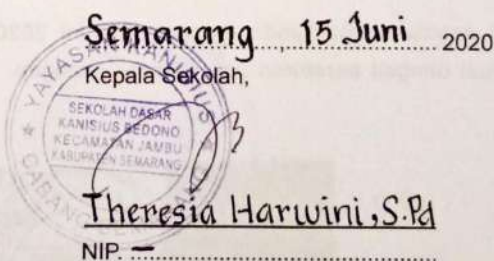 Semarang, 15 Juni 2020
Kepala Sekolah,
YAYASAN KANISIUS
SEKOLAH DASAR
KANISIUS BEDONO
KECAMATAN JAMBU
KABUPATEN SEMARANG
CABANG
Theresia Harwini, S.Pd
NIP. -